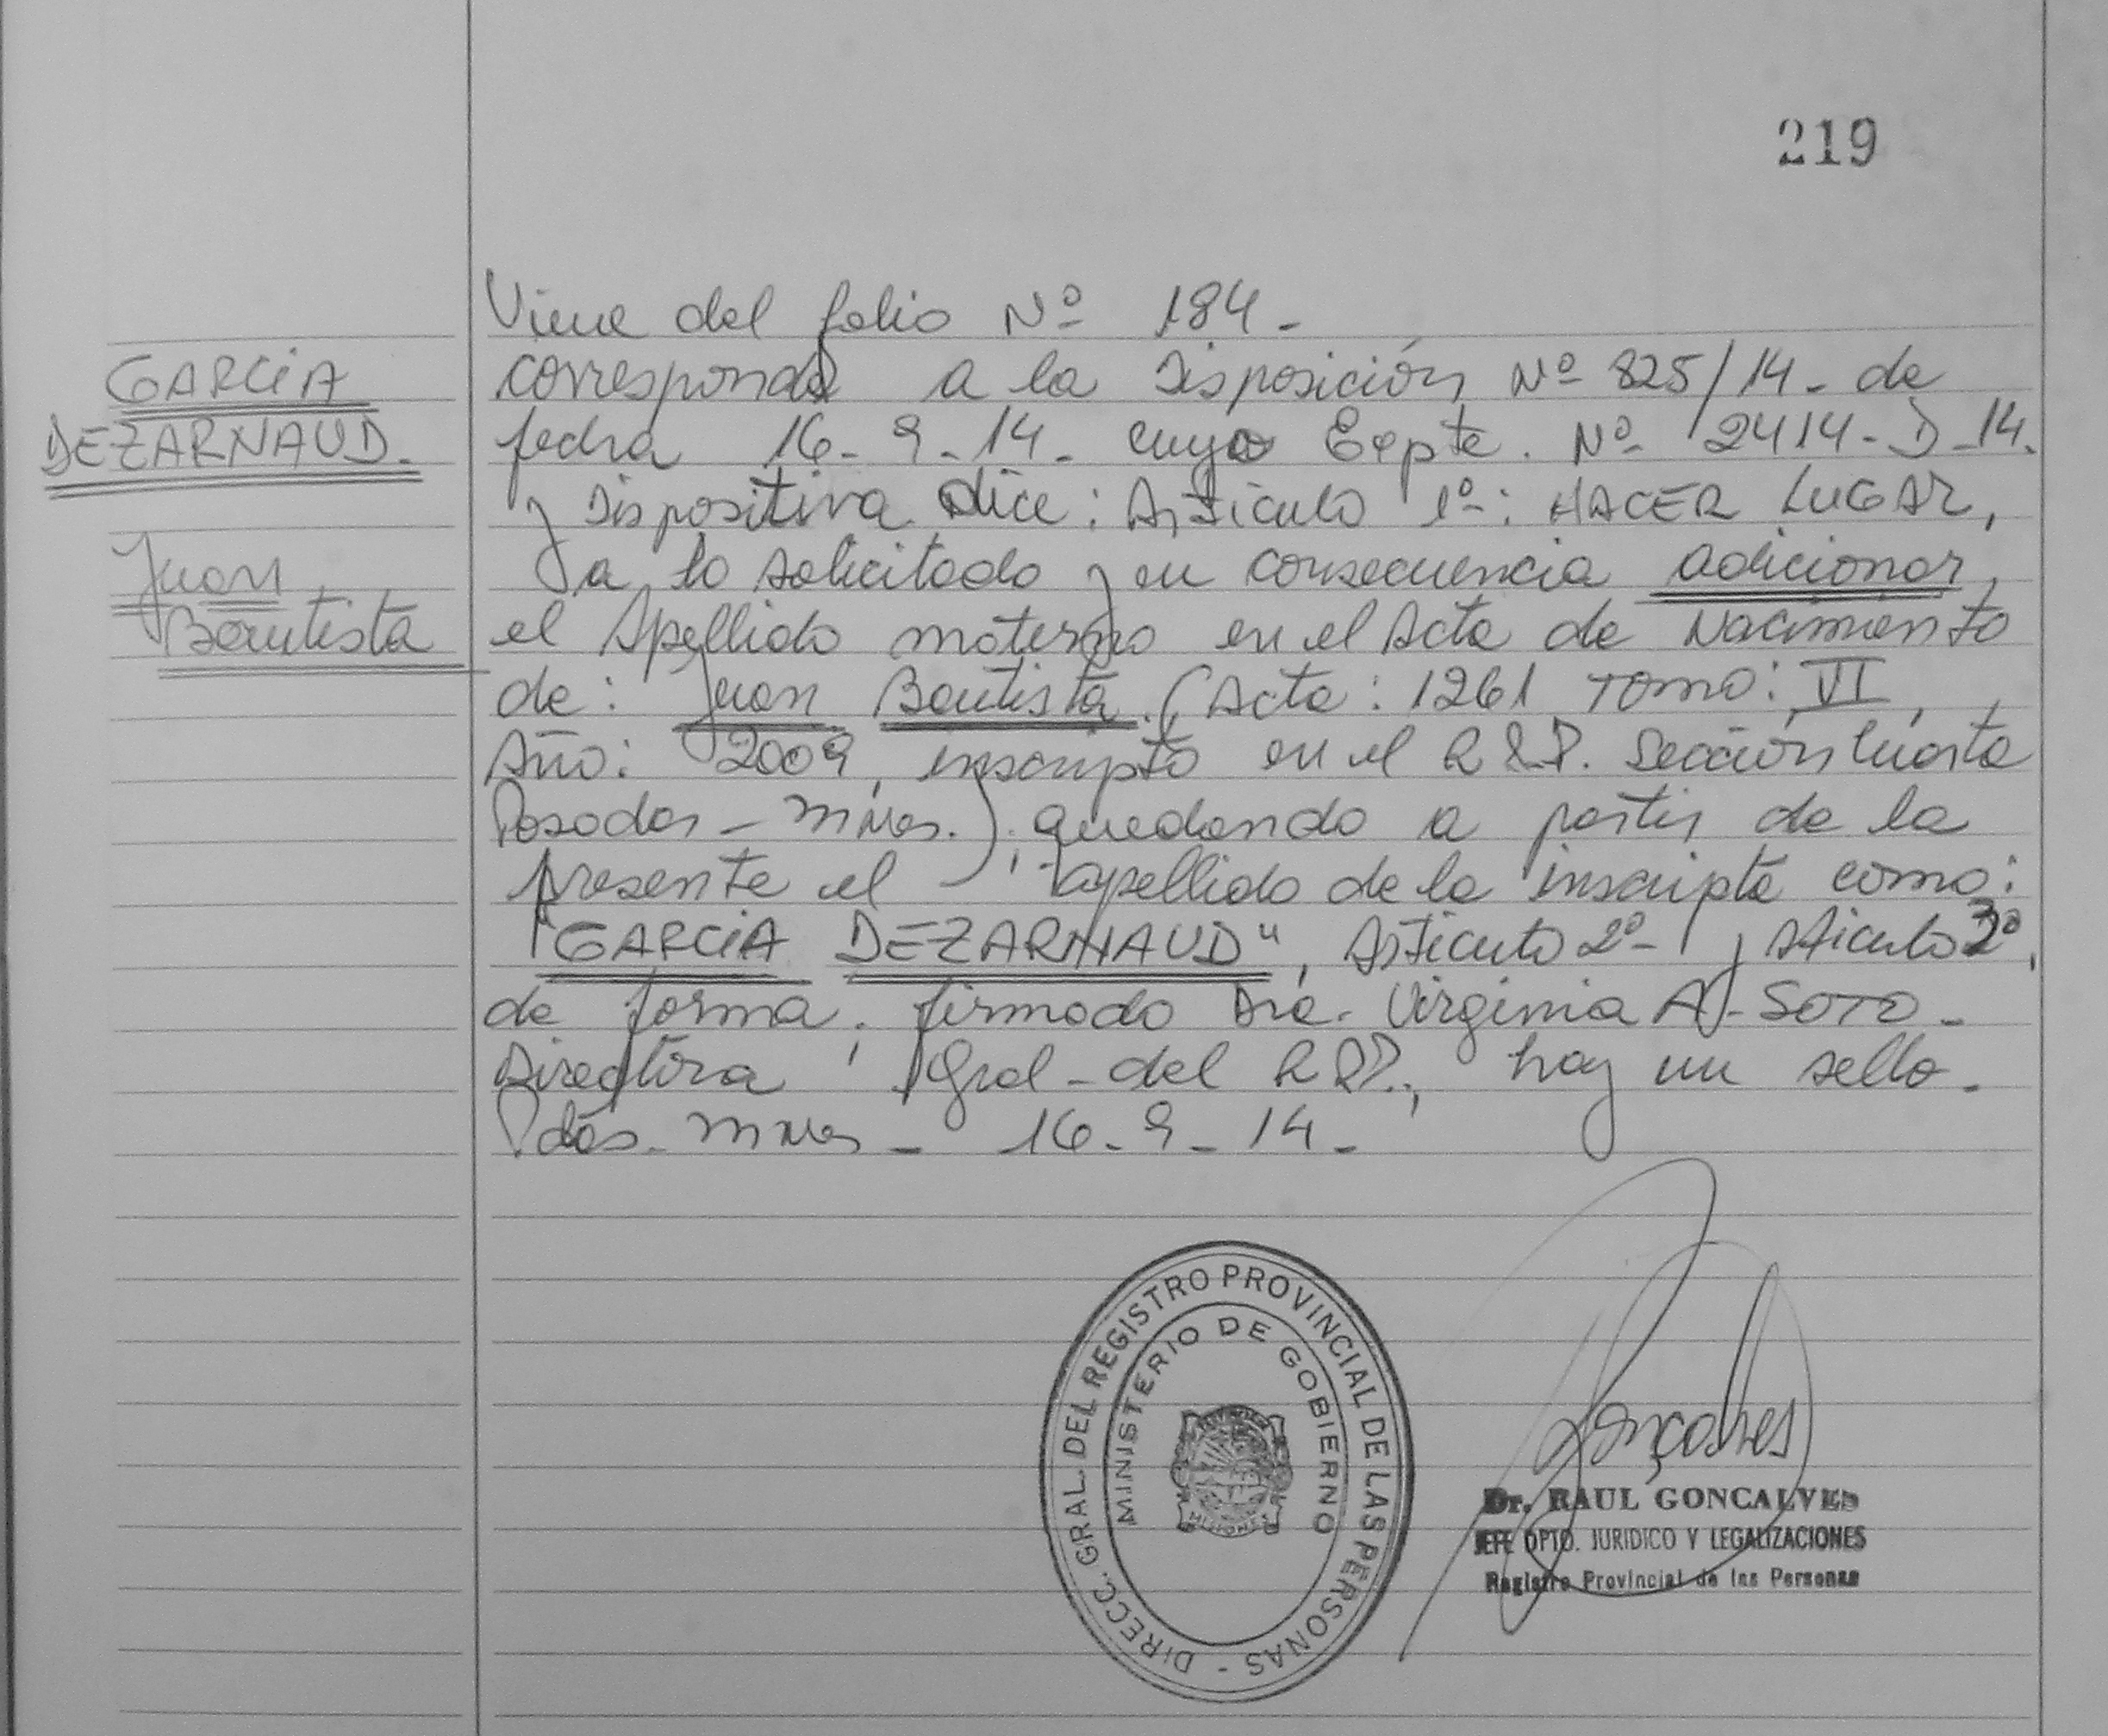 219
GARCiA
DEZARNAUD.
Juan
Bautista
Viene del folio Nº 184.-
corresponde a la Disposición Nº 825/14.- de
fecha 16-9-14- cuyo Expte. Nº 2414-D-14.
y Dispositiva dice: Artículo 1º: HACER LUGAR,
a lo solicitado y en consecuencia adicionar,
el Apellido materno en el Acta de Nacimiento
de: Juan Bautista. (Acta: 1261 Tomo: VI,
Año: 2009, inscripto en el R.P. Sección Cuarta
Posadas - Mnes.), quedando a partir de la
presente el apellido de la inscripta como:
"GARCiA DEZARNAUD", Artículo 2º- y Articulo 3º,
de forma. firmado Dra. Virginia A. SOTO -
Directora Gral - del RPP., hay un sello.
Pdas. Mnes - 16-9-14-
DIRECC. GRAL. DEL REGISTRO PROVINCIAL DE LAS PERSONAS -
MINISTERIO DE GOBIERNO
MISIONES
Gonçalves
Dr. RAUL GONCALVES
JEFE DPTO. JURIDICO Y LEGALIZACIONES
Registro Provincial de las Personas